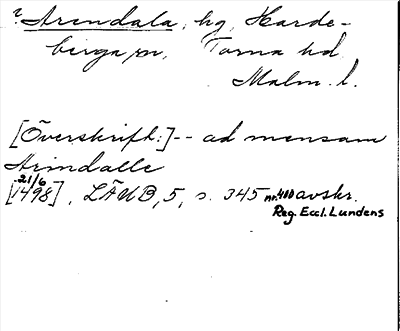 ? Arendala, hg, Harde-
berga sn, Torna hd
Malm. l.
[Överskrift:] -- ad mensam
Arindalle
21/6
[1498], LÄUB, 5, s. 345 nr. 400 avskr.
Reg. Eccl. Lundens